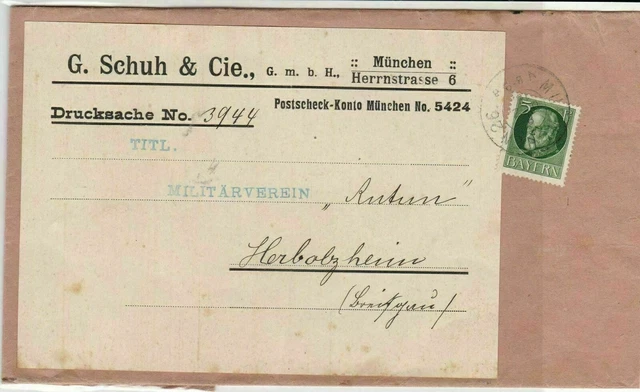 G. Schuh & Cie., G. m. b. H., :: München ::
Herrnstrasse 6
Drucksache No. 3944
Postscheck-Konto München No. 5424
TITL.
MILITÄRVEREIN
Herbolzheim
(Breisgau)
5
BAYERN